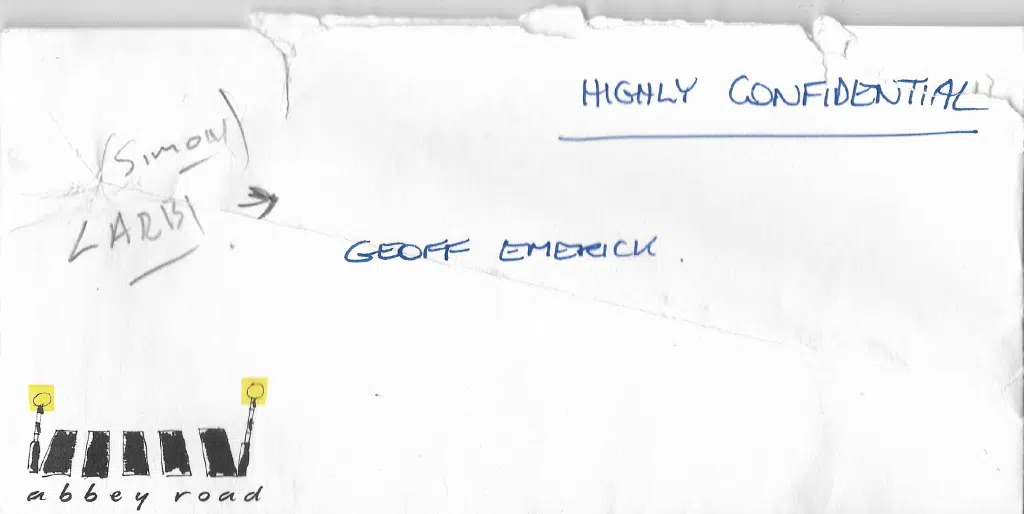 HIGHLY CONFIDENTIAL
(Simon)
LARBI
GEOFF EMERICK.
abbey road